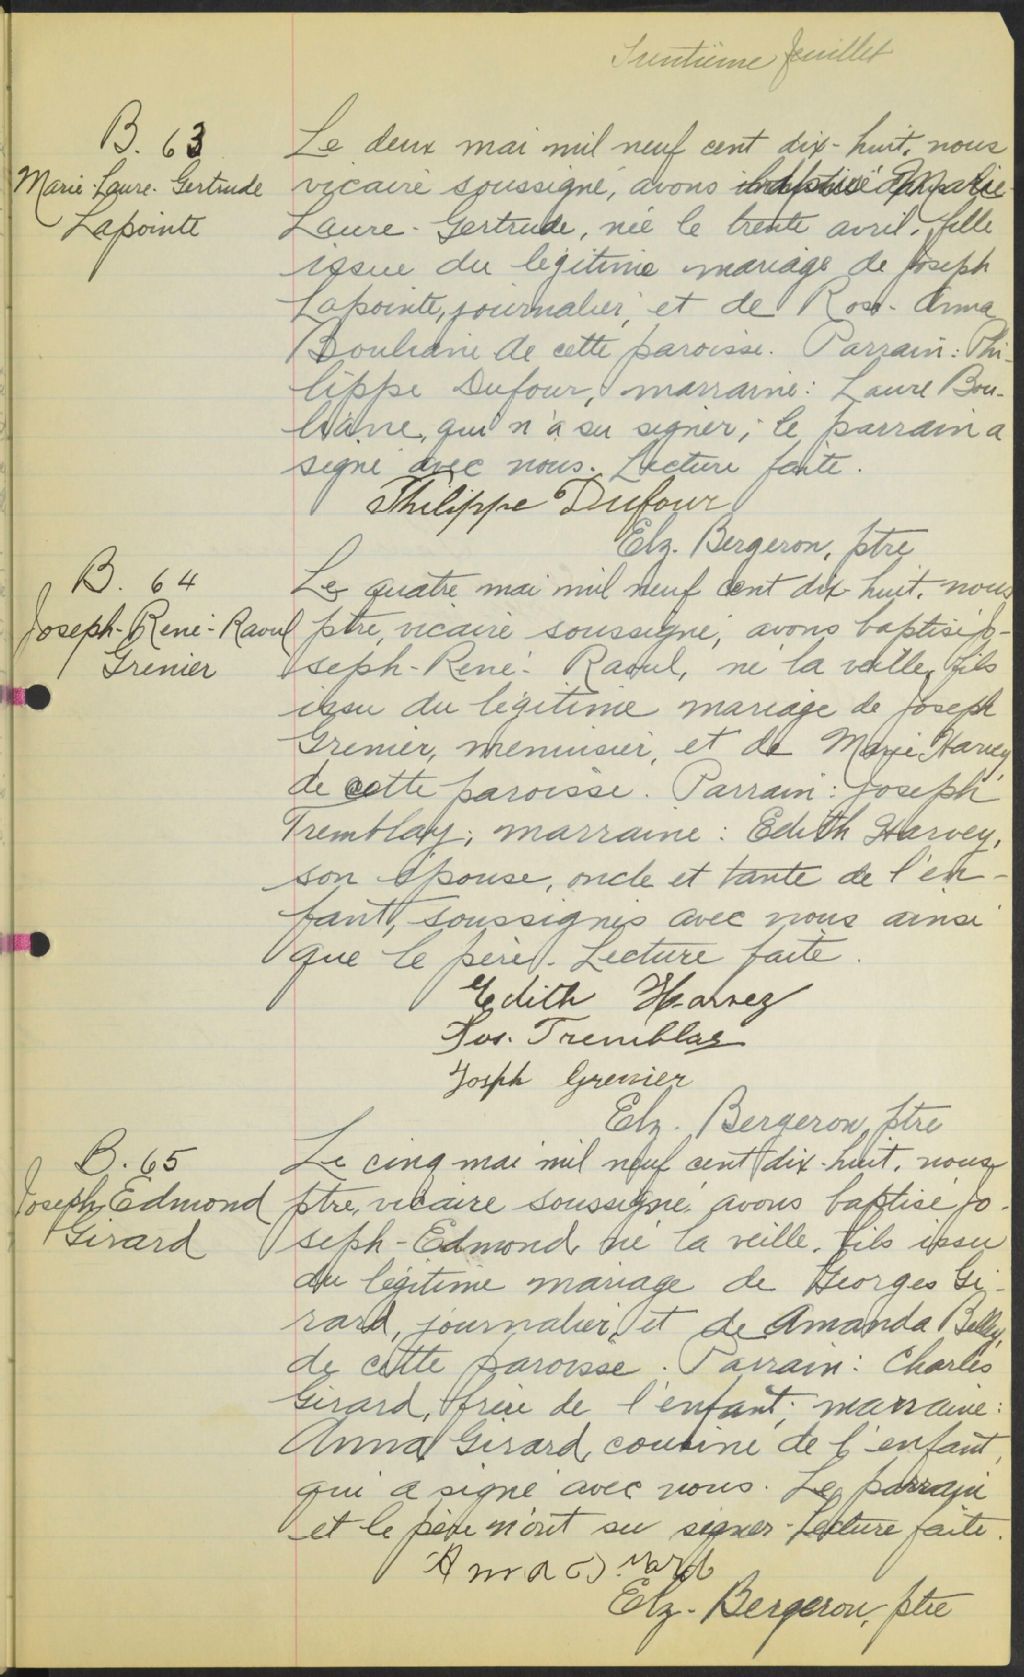 Trentième feuillet
B. 63
Marie-Laure-Gertrude
Lapointe
Le deux mai mil neuf cent dix-huit, nous
vicaire soussigné, avons baptisé Marie-
Laure-Gertrude, née le trente avril, fille
issue du légitime mariage de Joseph
Lapointe, journalier, et de Rose-Anna
Bouliane de cette paroisse. Parrain: Phi-
lippe Dufour, marraine: Laure Bou-
liane, qui n'a su signer; le parrain a
signé avec nous. Lecture faite.
Philippe Dufour
Elz. Bergeron, ptre
B. 64
Joseph-René-Raoul
Grenier
Le quatre mai mil neuf cent dix-huit, nous
ptre, vicaire soussigné, avons baptisé Jo-
seph-René-Raoul, né la veille, fils
issu du légitime mariage de Joseph
Grenier, menuisier, et de Marie Harvey
de cette paroisse. Parrain: Joseph
Tremblay; marraine: Edith Harvey,
son épouse, oncle et tante de l'en-
fant, soussignés avec nous ainsi
que le père. Lecture faite.
Edith Harvey
Jos. Tremblay
Josph Grenier
Elz. Bergeron, ptre
B. 65
Joseph Edmond
Girard
Le cinq mai mil neuf cent dix-huit, nous
ptre, vicaire soussigné, avons baptisé Jo-
seph-Edmond, né la veille, fils issu
du légitime mariage de Georges Gi-
rard, journalier, et de Amanda Belley,
de cette paroisse. Parrain: Charles
Girard, frère de l'enfant; marraine:
Anna Girard, cousine de l'enfant,
qui a signé avec nous. Le parrain
et le père n'ont su signer. Lecture faite.
Elz. Bergeron, ptre